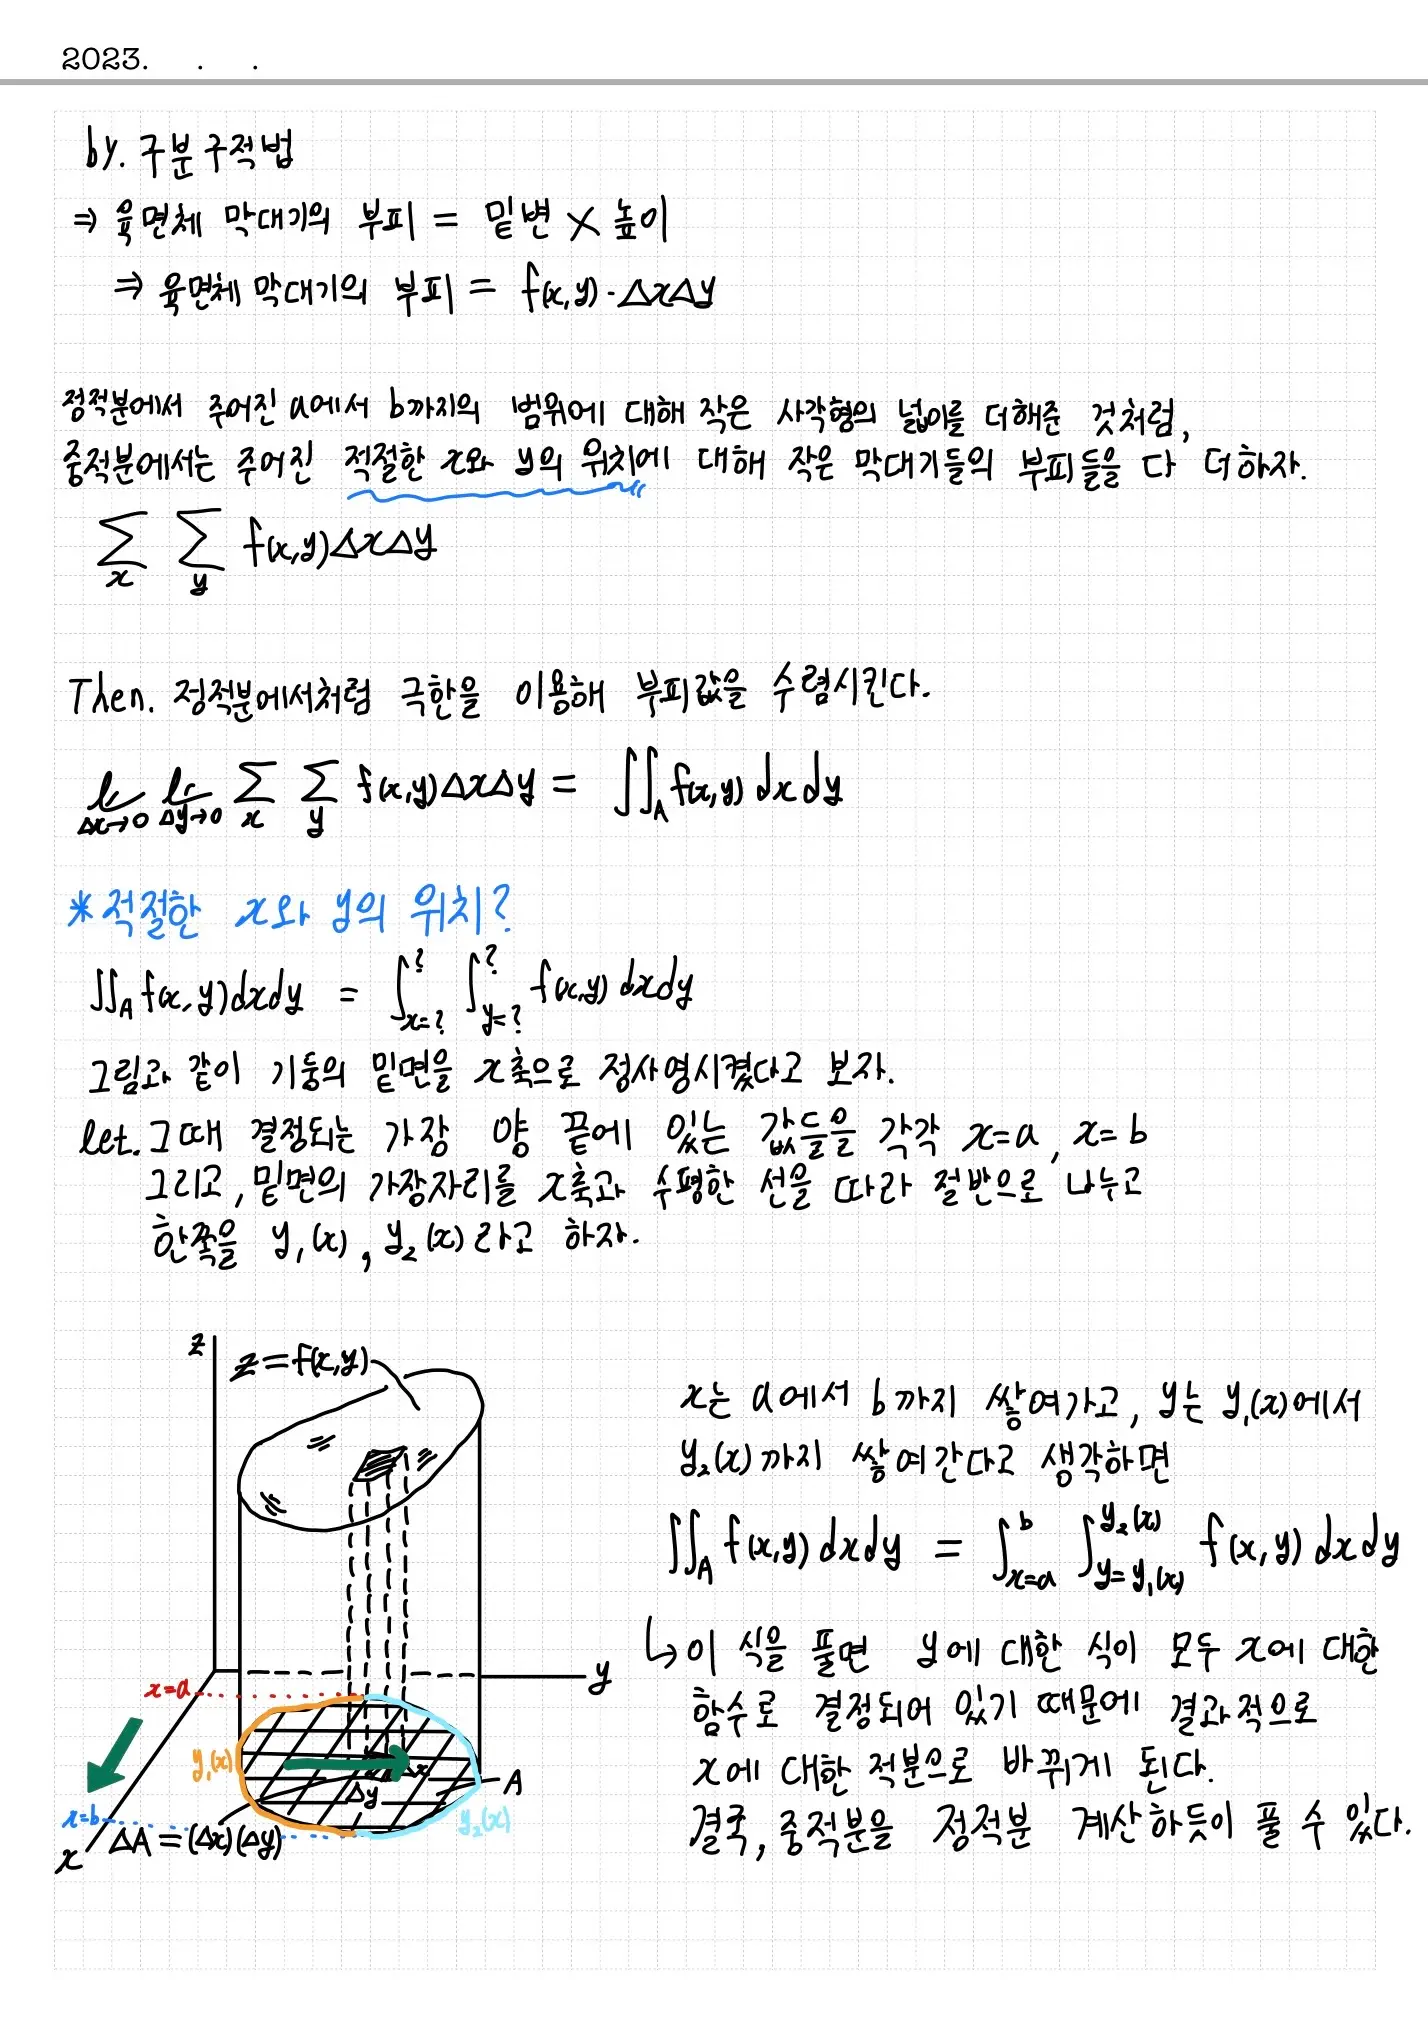 2023. . .
by. 구분구적법
⇒ 육면체 막대기의 부피 = 밑변 × 높이
⇒ 육면체 막대기의 부피 = f(x,y)·ΔxΔy
정적분에서 주어진 a에서 b까지의 범위에 대해 작은 사각형의 넓이를 더해준 것처럼,
중적분에서는 주어진 적절한 x와 y의 위치에 대해 작은 막대기들의 부피들을 다 더하자.
∑x ∑y f(x,y)ΔxΔy
Then. 정적분에서처럼 극한을 이용해 부피값을 수렴시킨다.
lim Δx→0 lim Δy→0 ∑x ∑y f(x,y)ΔxΔy = ∬A f(x,y) dx dy
*적절한 x와 y의 위치?
∬A f(x,y)dxdy = ∫x=?^? ∫y=?^? f(x,y) dxdy
그림과 같이 기둥의 밑면을 x축으로 정사영시켰다고 보자.
let. 그때 결정되는 가장 양 끝에 있는 값들을 각각 x=a, x=b
그리고, 밑면의 가장자리를 x축과 수평한 선을 따라 절반으로 나누고
한쪽을 y₁(x), y₂(x)라고 하자.
z
z=f(x,y)
y
x=a
y₁(x)
Δx
Δy
A
x=b
y₂(x)
x
ΔA=(Δx)(Δy)
x는 a에서 b까지 쌓여가고, y는 y₁(x)에서
y₂(x)까지 쌓여간다고 생각하면
∬A f(x,y) dxdy = ∫x=a^b ∫y=y₁(x)^y₂(x) f(x,y) dxdy
↳ 이 식을 풀면 y에 대한 식이 모두 x에 대한
함수로 결정되어 있기 때문에 결과적으로
x에 대한 적분으로 바뀌게 된다.
결국, 중적분을 정적분 계산하듯이 풀 수 있다.